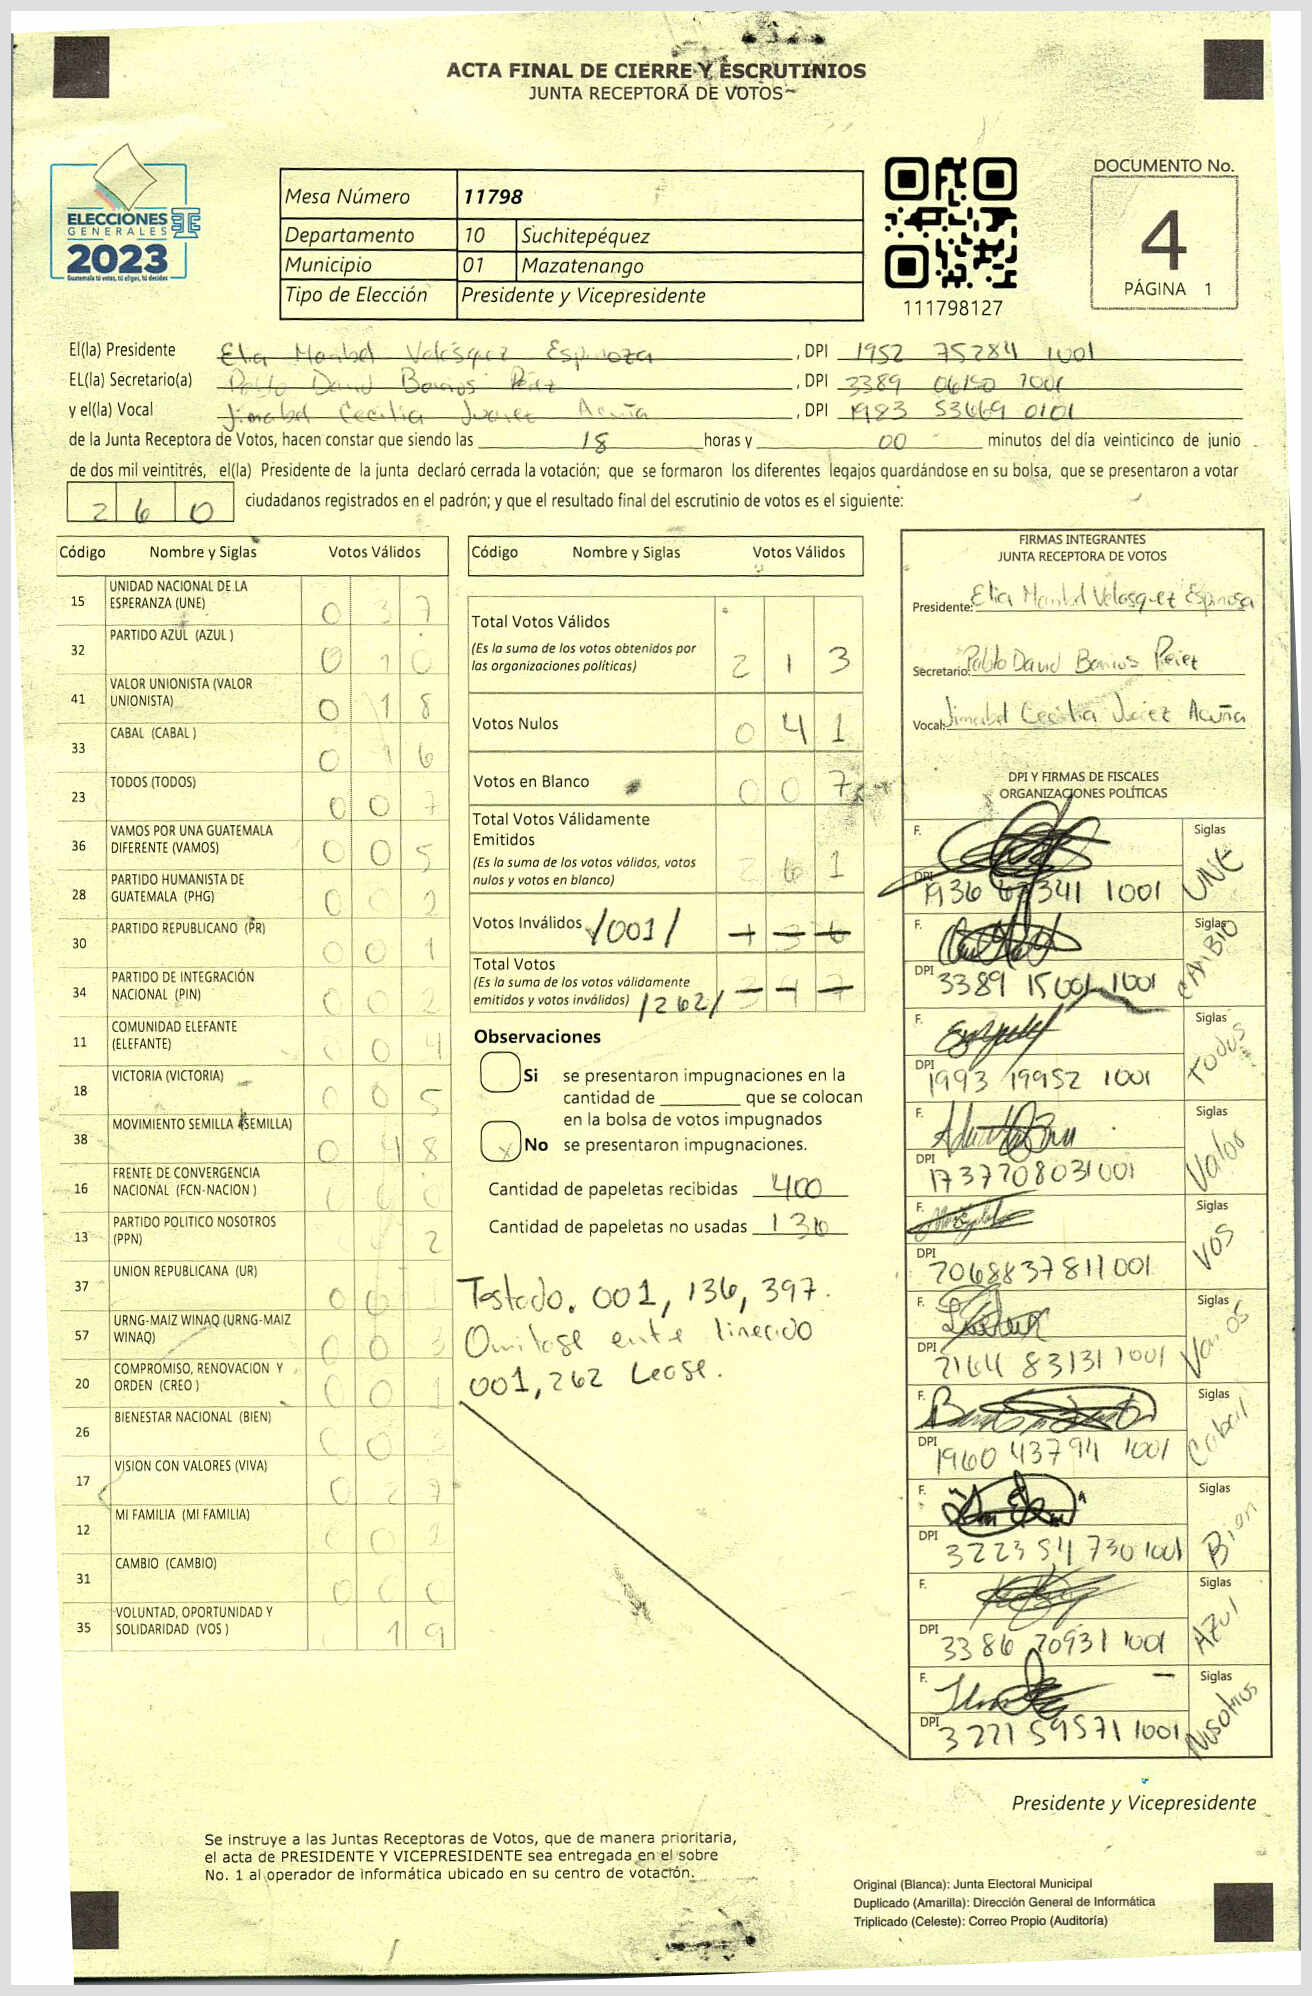 ACTA FINAL DE CIERRE Y ESCRUTINIOS
JUNTA RECEPTORA DE VOTOS
ELECCIONES
GENERALES
2023
Guatemala tú votas, tú eliges, tú decides
Mesa Número 11798
Departamento 10 Suchitepéquez
Municipio 01 Mazatenango
Tipo de Elección Presidente y Vicepresidente
111798127
DOCUMENTO No.
4
PÁGINA 1
El(la) Presidente Elia Maribel Velásquez Espinoza, DPI 1952 75284 1001
EL(la) Secretario(a) Pablo David Barrios Pérez, DPI 3389 06150 1001
y el(la) Vocal Jimabel Cecilia Juarez Acuña, DPI 1983 53669 0101
de la Junta Receptora de Votos, hacen constar que siendo las 18 horas y 00 minutos del día veinticinco de junio
de dos mil veintitrés, el(la) Presidente de la junta declaró cerrada la votación; que se formaron los diferentes legajos guardándose en su bolsa, que se presentaron a votar
260 ciudadanos registrados en el padrón; y que el resultado final del escrutinio de votos es el siguiente:
Código Nombre y Siglas Votos Válidos
15 UNIDAD NACIONAL DE LA ESPERANZA (UNE) 0 3 7
32 PARTIDO AZUL (AZUL ) 0 1 0
41 VALOR UNIONISTA (VALOR UNIONISTA) 0 1 8
33 CABAL (CABAL ) 0 1 6
23 TODOS (TODOS) 0 0 7
36 VAMOS POR UNA GUATEMALA DIFERENTE (VAMOS) 0 0 5
28 PARTIDO HUMANISTA DE GUATEMALA (PHG) 0 0 2
30 PARTIDO REPUBLICANO (PR) 0 0 1
34 PARTIDO DE INTEGRACIÓN NACIONAL (PIN) 0 0 2
11 COMUNIDAD ELEFANTE (ELEFANTE) 0 0 4
18 VICTORIA (VICTORIA) 0 0 5
38 MOVIMIENTO SEMILLA (SEMILLA) 0 4 8
16 FRENTE DE CONVERGENCIA NACIONAL (FCN-NACION ) 0 0 0
13 PARTIDO POLITICO NOSOTROS (PPN) 2
37 UNION REPUBLICANA (UR) 0 0 1
57 URNG-MAIZ WINAQ (URNG-MAIZ WINAQ) 0 0 3
20 COMPROMISO, RENOVACION Y ORDEN (CREO ) 0 0 1
26 BIENESTAR NACIONAL (BIEN) 0 0 3
17 VISION CON VALORES (VIVA) 0 2 7
12 MI FAMILIA (MI FAMILIA) 0 0 2
31 CAMBIO (CAMBIO) 0 0 0
35 VOLUNTAD, OPORTUNIDAD Y SOLIDARIDAD (VOS ) 1 9
Código Nombre y Siglas Votos Válidos
Total Votos Válidos
(Es la suma de los votos obtenidos por
las organizaciones políticas) 2 1 3
Votos Nulos 0 4 1
Votos en Blanco 0 0 7
Total Votos Válidamente
Emitidos
(Es la suma de los votos válidos, votos
nulos y votos en blanco) 2 6 1
Votos Inválidos /001/ 1 3 6
Total Votos
(Es la suma de los votos válidamente
emitidos y votos inválidos) /262/ 3 9 7
Observaciones
Si se presentaron impugnaciones en la
cantidad de ________ que se colocan
en la bolsa de votos impugnados
x No se presentaron impugnaciones.
Cantidad de papeletas recibidas 400
Cantidad de papeletas no usadas
Testado. 001, 136, 397.
Omitase entre linecido
001, 262 Lease.
FIRMAS INTEGRANTES
JUNTA RECEPTORA DE VOTOS
Presidente: Elia Maribel Velasquez Espinosa
Secretario: Pablo David Barrios Pérez
Vocal: Jimabel Cecilia Juárez Acuña
DPI Y FIRMAS DE FISCALES
ORGANIZACIONES POLÍTICAS
F. Siglas UNE
DPI 1001
F. Siglas CAMBIO
DPI 3389 15001 1001
F. Siglas Todos
DPI 1993 19952 1001
F. Siglas Valor
DPI 1737708031001
F. Siglas VOS
DPI 7068837811001
F. Siglas Vamos
DPI 2164 83131 1001
F. Siglas Cabal
DPI 1960 43794 1001
F. Siglas Bien
DPI 3223 54 730 1001
F. Siglas AZul
DPI 3386 70931 1001
F. Siglas Nosotros
DPI 3221 59571 1001
Presidente y Vicepresidente
Se instruye a las Juntas Receptoras de Votos, que de manera prioritaria,
el acta de PRESIDENTE Y VICEPRESIDENTE sea entregada en el sobre
No. 1 al operador de informática ubicado en su centro de votación.
Original (Blanca): Junta Electoral Municipal
Duplicado (Amarilla): Dirección General de Informática
Triplicado (Celeste): Correo Propio (Auditoría)